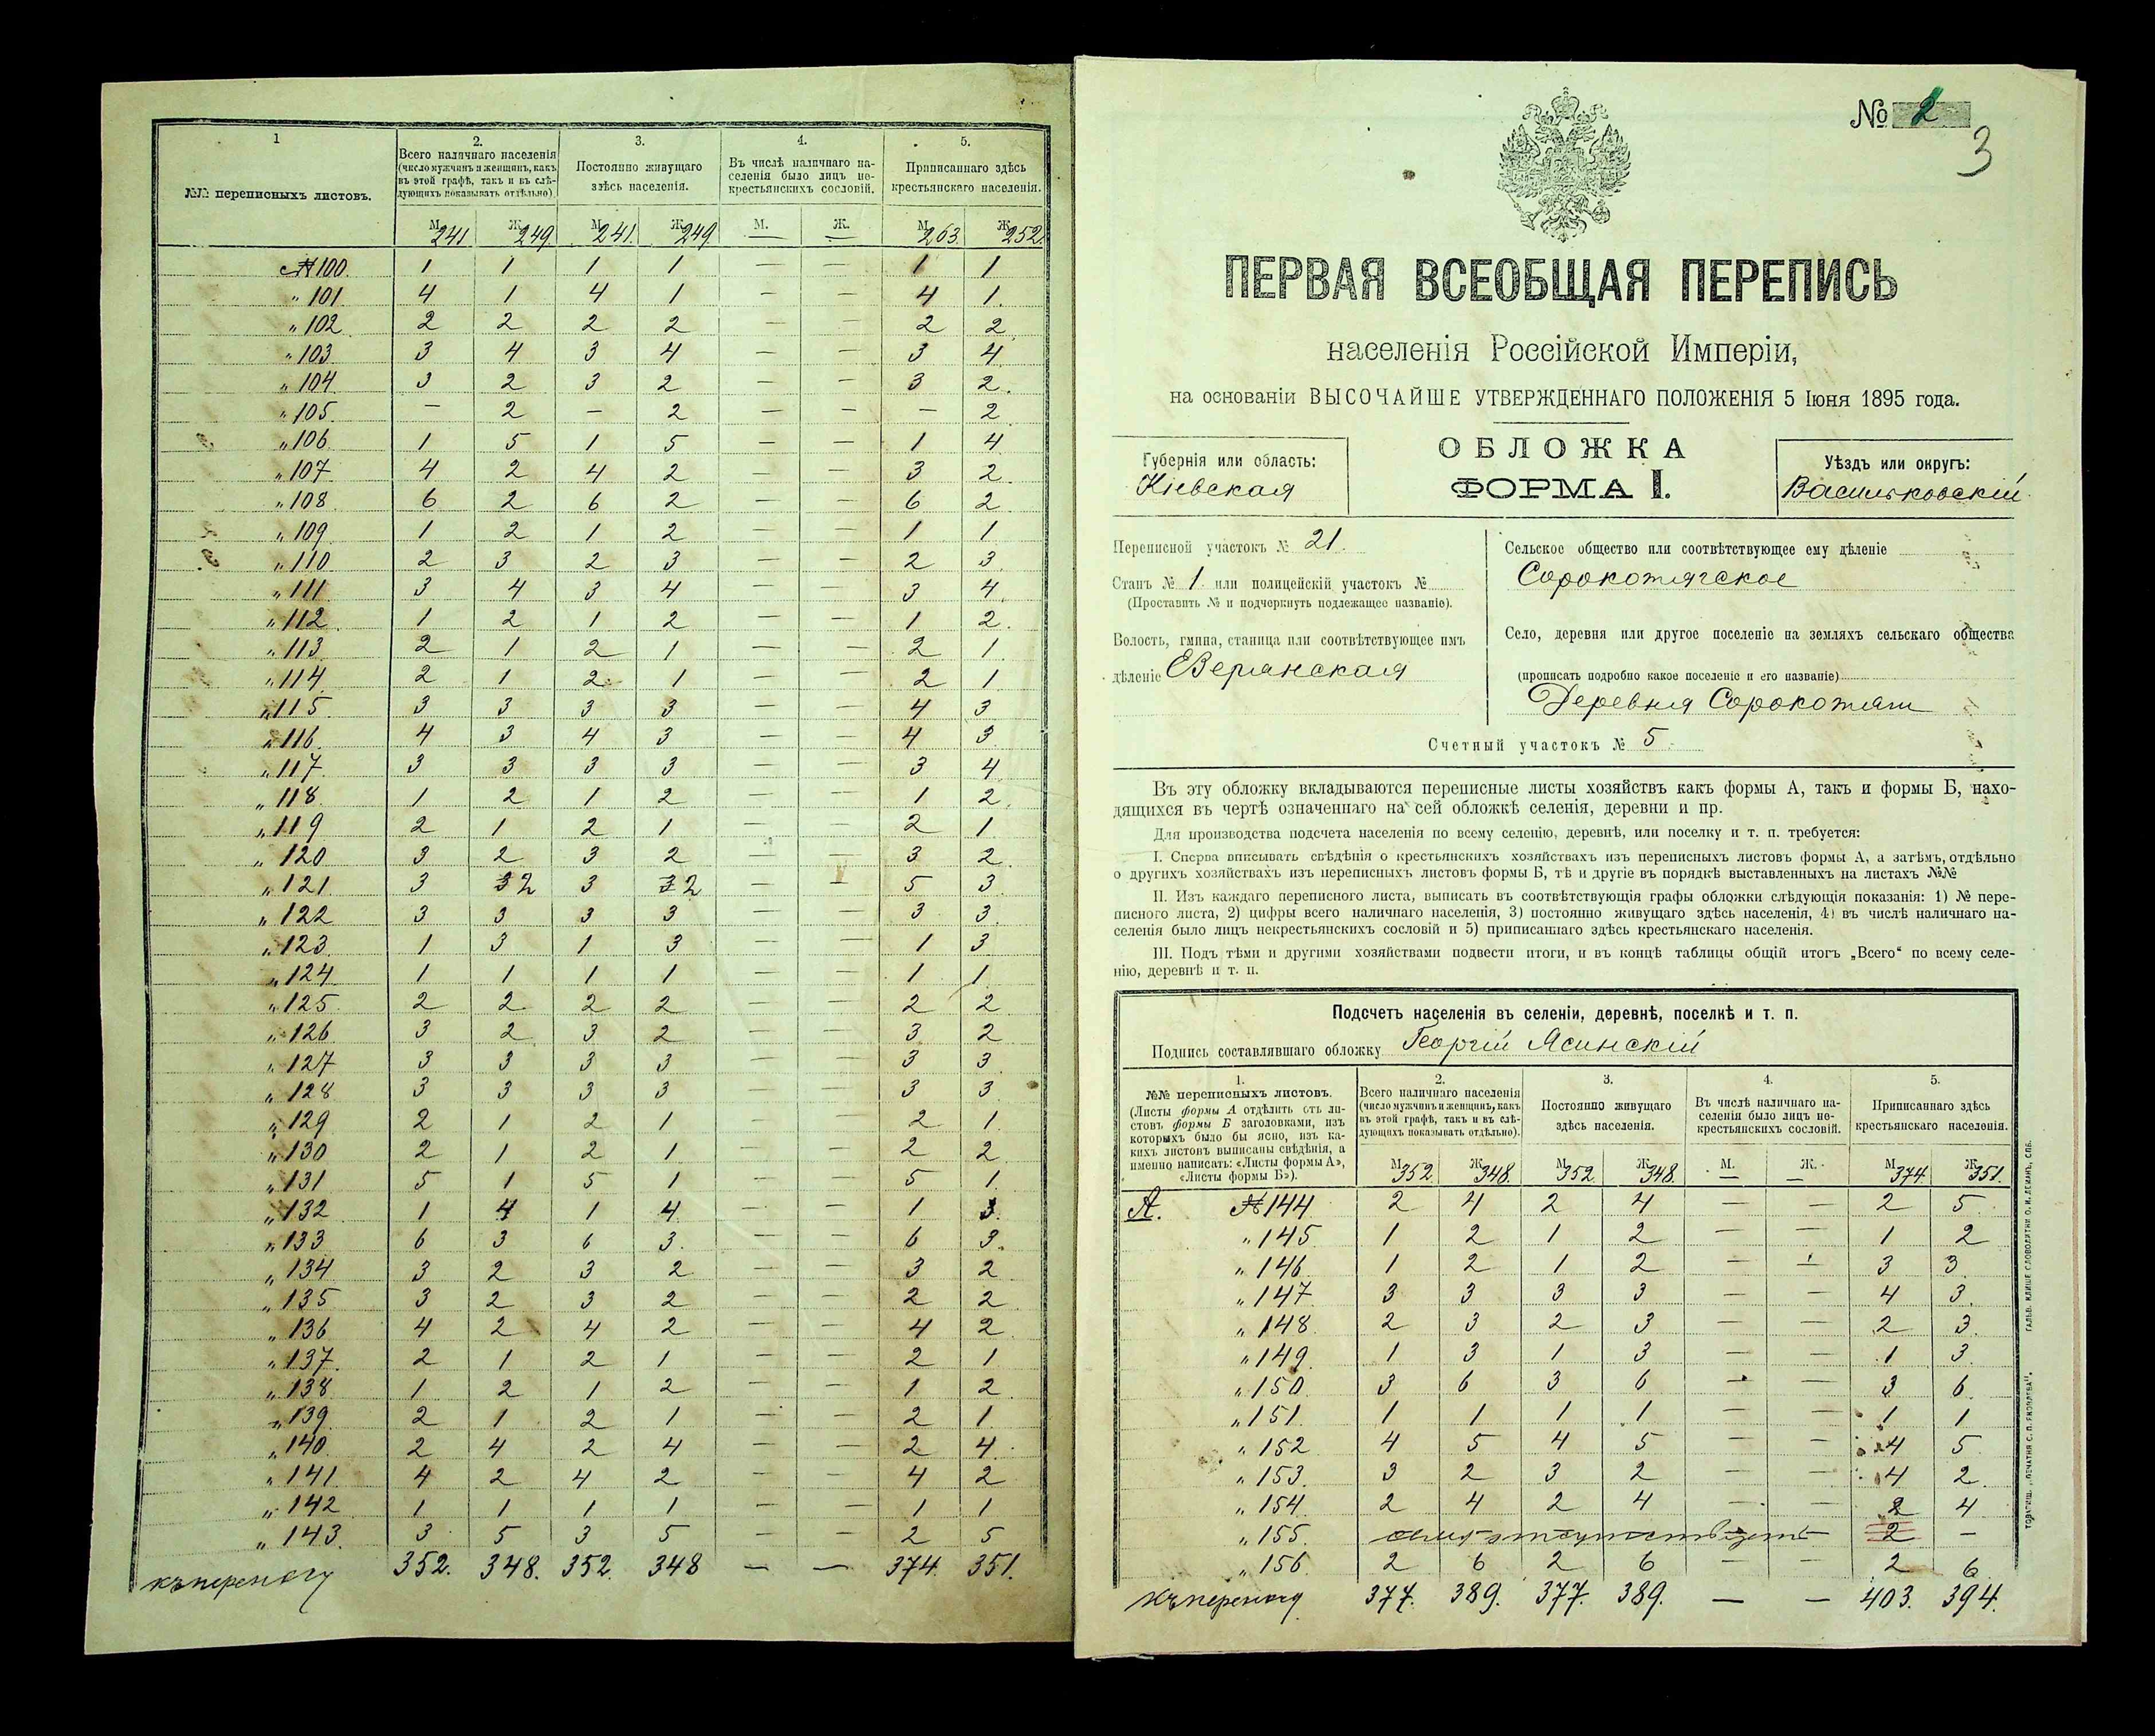 1
2.
3.
4.
5.
№№ переписныхъ листовъ.
Всего наличнаго населенія (число мужчинъ и женщинъ, какъ въ этой графѣ, такъ и въ слѣдующихъ показывать отдѣльно)
Постоянно живущаго здѣсь населенія.
Въ числѣ наличнаго населенія было лицъ некрестьянскихъ сословій.
Приписаннаго здѣсь крестьянскаго населенія.
М 241 Ж 249 М 241. Ж 249 М. — Ж. — М 263. Ж 252.
№ 100 1 1 1 1 — — 1 1
„ 101 4 1 4 1 — — 4 1.
„ 102 2 2 2 2 — — 2 2
„ 103 3 4 3 4 — — 3 4
„ 104 3 2 3 2 — — 3 2.
„ 105 — 2 — 2 — — — 2
„ 106 1 5 1 5 — — 1 4
„ 107 4 2 4 2 — — 3 2
„ 108 6 2 6 2 — — 6 2
„ 109 1 2 1 2 — — 1 1
„ 110 2 3 2 3 — — 2 3
„ 111 3 4 3 4 — — 3 4
„ 112 1 2 1 2 — — 1 2.
„ 113 2 1 2 1 — — 2 1.
„ 114 2 1 2 1 — — 2 1
„ 115 3 3 3 3 — — 4 3
„ 116 4 3 4 3 — — 4 3
„ 117 3 3 3 3 — — 3 4
„ 118 1 2 1 2 — — 1 2
„ 119 2 1 2 1 — — 2 1
„ 120 3 2 3 2 — — 3 2
„ 121 3 3 2 3 3 2 — — 5 3
„ 122 3 3 3 3 — — 3 3
„ 123 1 3 1 3 — — 1 3
„ 124 1 1 1 1 — — 1 1.
„ 125 2 2 2 2 — — 2 2
„ 126 3 2 3 2 — — 3 2
„ 127 3 3 3 3 — — 3 3
„ 128 3 3 3 3 — 3 3
„ 129 2 1 2 1 — — 2 1.
„ 130 2 1 2 1 — — 2 2
„ 131 5 1 5 1 — — 5 1.
„ 132 1 4 1 4 — — 1 3.
„ 133 6 3 6 3. — — 6 3.
„ 134 3 2 3 2 — — 3 2
„ 135 3 2 3 2 — — 2 2
„ 136 4 2 4 2 — — 4 2
„ 137. 2 1 2 1 — — 2 1
„ 138 1 2 1 2 — — 1 2
„ 139 2 1 2 1 — — 2 1.
„ 140 2 4 2 4 — — 2 4
„ 141 4 2 4 2 — — 4 2
„ 142 1 1 1 1 — — 1 1
„ 143. 3 5 3 5 — — 2 5
къ переносу 352. 348. 352. 348 — — 374. 351.
№ 2
3
ПЕРВАЯ ВСЕОБЩАЯ ПЕРЕПИСЬ
населенія Россійской Имперіи,
на основаніи ВЫСОЧАЙШЕ УТВЕРЖДЕННАГО ПОЛОЖЕНІЯ 5 Іюня 1895 года.
Губернія или область:
Кіевская
ОБЛОЖКА
ФОРМА I.
Уѣздъ или округъ:
Васильковскій
Переписной участокъ № 21.
Станъ № 1. или полицейскій участокъ №
(Проставить № и подчеркнуть подлежащее названіе).
Волость, гмина, станица или соотвѣтствующее имъ
дѣленіе
Сельское общество или соотвѣтствующее ему дѣленіе
Сорокотягское
Село, деревня или другое поселеніе на земляхъ сельскаго общества
(прописать подробно какое поселеніе и его названіе)
Деревня Сорокотяги
Счетный участокъ № 5.
Въ эту обложку вкладываются переписные листы хозяйствъ какъ формы А, такъ и формы Б, нахо-
дящихся въ чертѣ означеннаго на сей обложкѣ селенія, деревни и пр.
Для производства подсчета населенія по всему селенію, деревнѣ, или поселку и т. п. требуется:
I. Сперва вписывать свѣдѣнія о крестьянскихъ хозяйствахъ изъ переписныхъ листовъ формы А, а затѣмъ, отдѣльно
о другихъ хозяйствахъ изъ переписныхъ листовъ формы Б, тѣ и другіе въ порядкѣ выставленныхъ на листахъ №№
II. Изъ каждаго переписного листа, выписать въ соотвѣтствующія графы обложки слѣдующія показанія: 1) № пере-
писного листа, 2) цифры всего наличнаго населенія, 3) постоянно живущаго здѣсь населенія, 4) въ числѣ наличнаго на-
селенія было лицъ некрестьянскихъ сословій и 5) приписаннаго здѣсь крестьянскаго населенія.
III. Подъ тѣми и другими хозяйствами подвести итоги, и въ концѣ таблицы общій итогъ „Всего“ по всему селе-
нію, деревнѣ и т. п.
Подсчетъ населенія въ селеніи, деревнѣ, поселкѣ и т. п.
Подпись составлявшаго обложку Георгій Ясинскій
1.
2.
3.
4.
5.
№№ переписныхъ листовъ.
(Листы формы А отдѣлить отъ ли-
стовъ формы Б заголовками, изъ
которыхъ было бы ясно, изъ ка-
кихъ листовъ выписаны свѣдѣнія, а
именно написать: «Листы формы А»,
«Листы формы Б»).
Всего наличнаго населенія
(число мужчинъ и женщинъ, какъ
въ этой графѣ, такъ и въ слѣ-
дующихъ показывать отдѣльно).
Постоянно живущаго
здѣсь населенія.
Въ числѣ наличнаго на-
селенія было лицъ не-
крестьянскихъ сословій.
Приписаннаго здѣсь
крестьянскаго населенія.
М 352. Ж 348. М 352. Ж 348. М. — Ж. — М 374. Ж 351.
А. № 144 2 4 2 4 — — 2 5
„ 145 1 2 1 2 — — 1 2
„ 146 1 2 1 2 — — 3 3
„ 147 3 3 3 3 — — 4 3.
„ 148 2 3 2 3 — — 2 3.
„ 149 1 3 1 3 — — 1 3
„ 150 3 6 3 6 — — 3 6.
„ 151. 1 1 1 1 — — 1 1
„ 152 4 5 4 5 — — 4 5
„ 153. 3 2 3 2 — — 4 2.
„ 154. 2 4 2 4 — — 2 4
„ 155. 2 —
„ 156 2 6 2 6 — — 2 6
къ переносу 377. 389. 377. 389. — — 403. 394.
ТОВАРИЩ. „ПЕЧАТНЯ С. П. ЯКОВЛЕВА“. ГАЛЬВ. КЛИШЕ СЛОВОЛИТНИ О. И. ЛЕМАНЪ, СПБ.